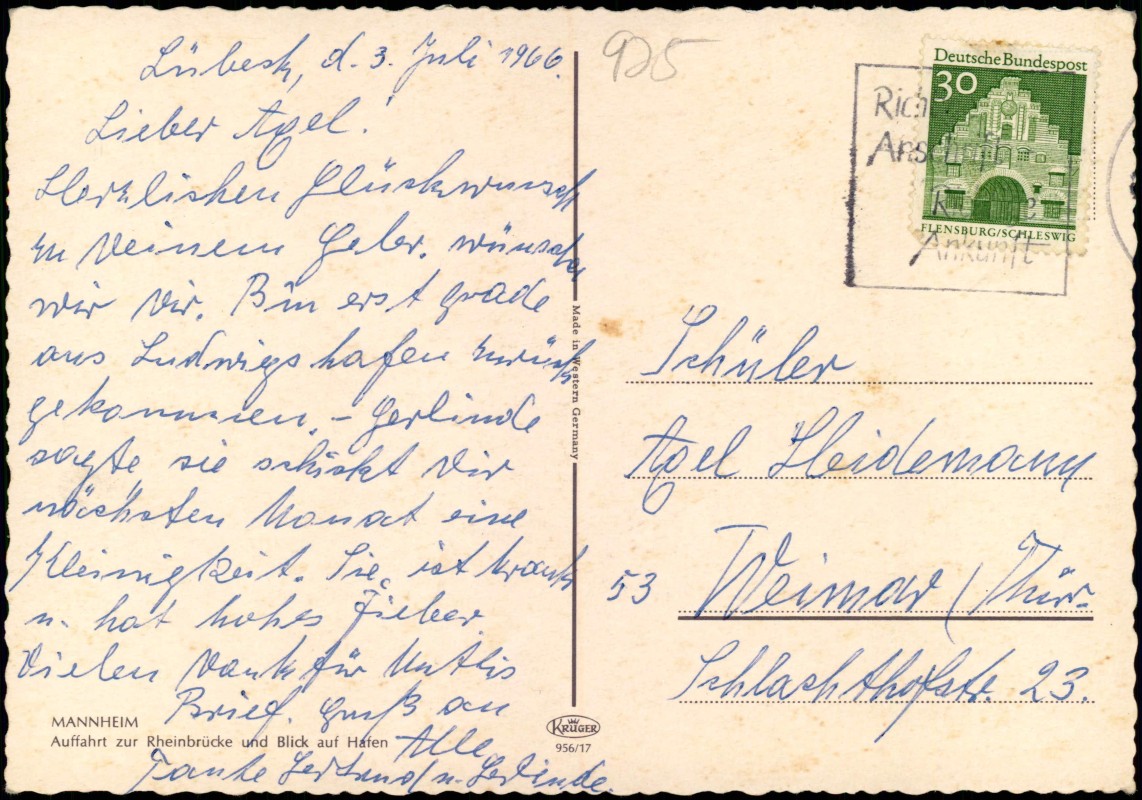 Lübeck, d. 3. Juli 1966.
Lieber Agel!
Herzlichen Glückwunsch
zu Deinem Gebr. wünschen
wir Dir. Bin erst grade
aus Ludwigshafen zurück
gekommen. – Gerlinde
sagte sie schickt Dir
nächsten Monat eine
Kleinigkeit. Sie ist krank
u. hat hohes Fieber.
Vielen Dank für Muttis
Brief. Gruß an
Alle
Tante Gertrud u. Gerlinde.
MANNHEIM
Auffahrt zur Rheinbrücke und Blick auf Hafen
Made in Western Germany
KRÜGER
956/17
925
Deutsche Bundespost
30
FLENSBURG/SCHLESWIG
Ankunft
Schüler
Agel Heidemann
53 Weimar / Thür.
Schlachthofstr. 23.